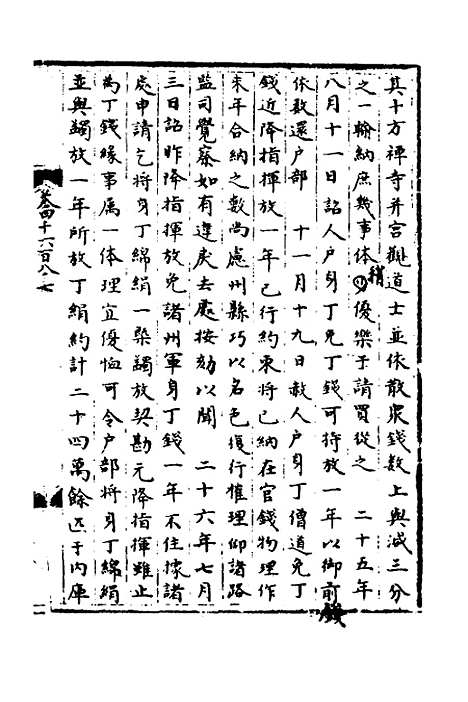 其十方禪寺并宫觀道士並依散衆錢數上與減三分
之一輸納庶幾事体稍優樂于請買從之　二十五年
八月十一日詔人户身丁免丁錢可特放一年以御前錢
依数還户部　十一月十九日赦人户身丁僧道免丁
錢近降指揮放一年已行約束將已納在官錢物理作
来年合納之數尚慮州縣巧以名色復行催理仰諸路
監司覺察如有違戾去處按劾以聞　二十六年七月
三日詔昨降指揮放免諸州軍身丁錢一年不住據諸
處申請乞将身丁綿絹一槩蠲放契勘元降指揮雖止
為丁錢緣事属一体理宜優恤可令户部將身丁綿絹
並與蠲放一年所放丁絹約計二十四萬餘匹于内庫